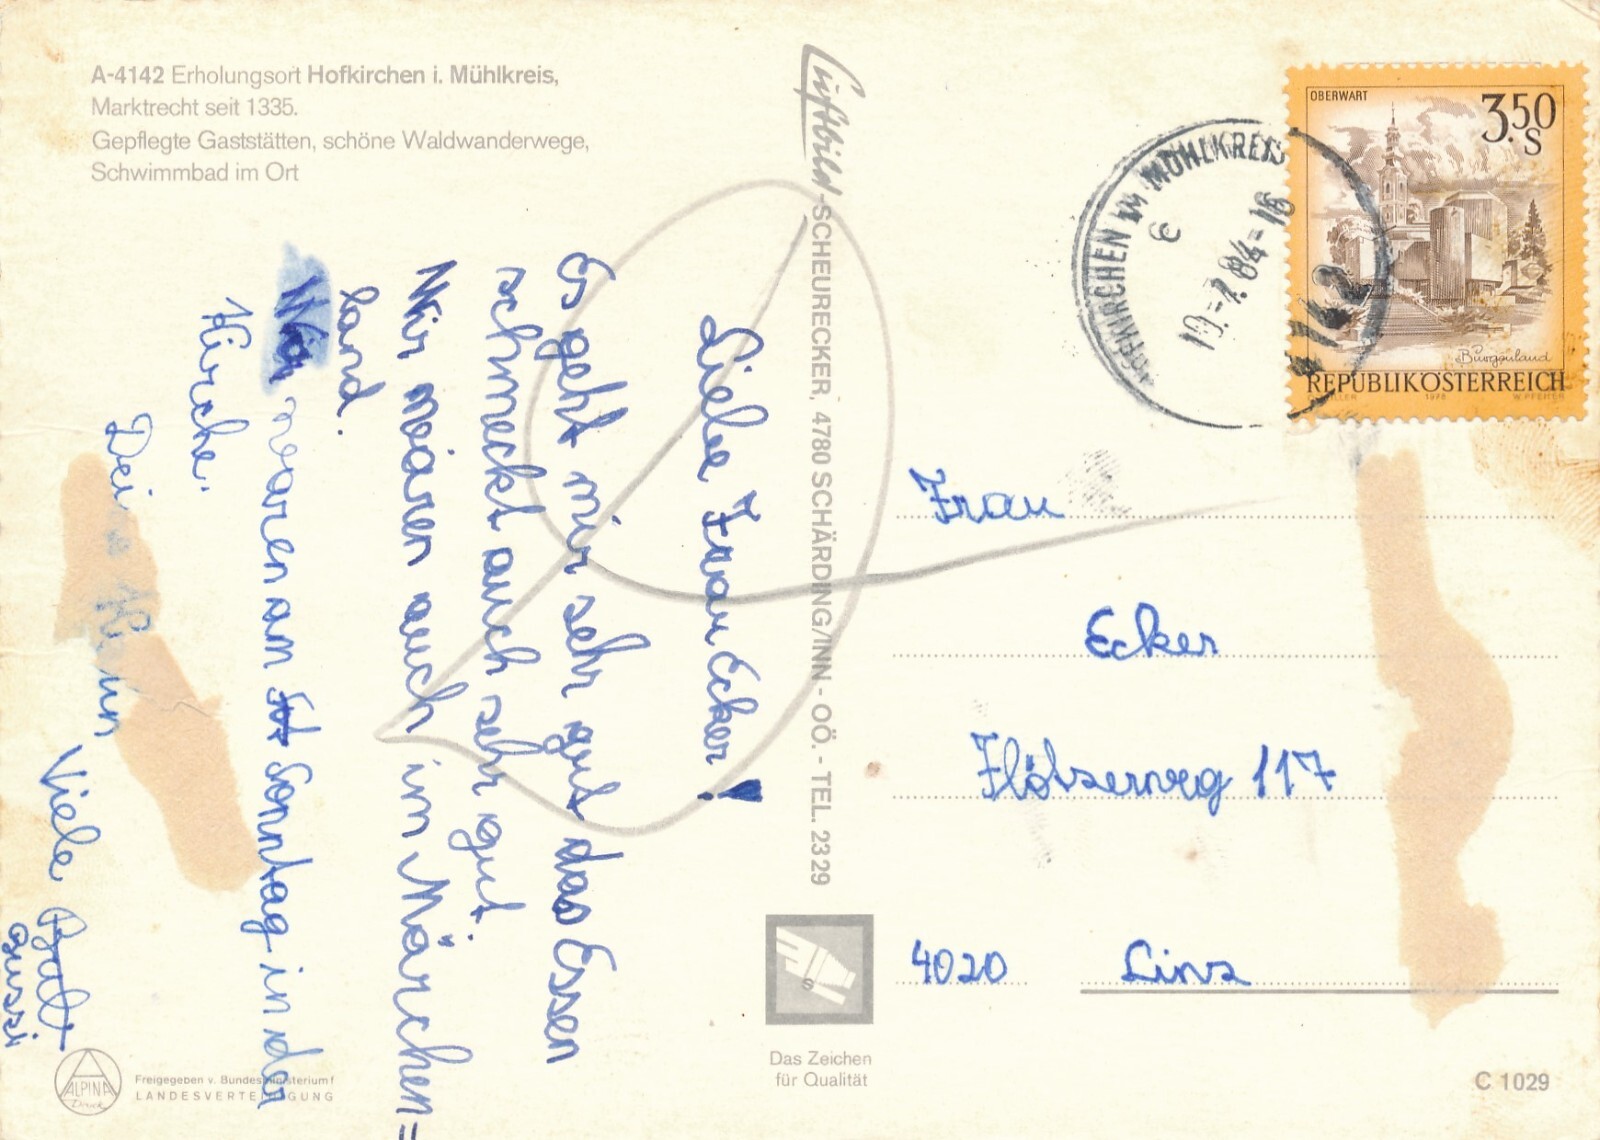 A-4142 Erholungsort Hofkirchen i. Mühlkreis,
Marktrecht seit 1335.
Gepflegte Gaststätten, schöne Waldwanderwege,
Schwimmbad im Ort
Luftbild-SCHEURECKER, 4780 SCHÄRDING/INN - OÖ. - TEL. 2329
OBERWART
3.50
S
Burgenland
REPUBLIK ÖSTERREICH
1978
W. PFEILER
HOFKIRCHEN IM MÜHLKREIS
c
19.-7.84-16
4142
Liebe Frau Ecker!
Es geht mir sehr gut das Essen
schmeckt auch sehr gut.
Wir wären auch im Märchen=
land.
Wir waren am Sonntag in der
Kirche.
Viele
Frau
Ecker
Flötzerweg 117
4020 Linz
Das Zeichen
für Qualität
ALPINA
Druck
Freigegeben v. Bundesministerium f
LANDESVERTEIDIGUNG
C 1029